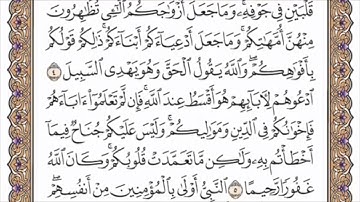 قَلْبَيْنِ فِي جَوْفِهِۦ ۚ وَمَا جَعَلَ أَزْوَٰجَكُمُ ٱلَّٰٓـِٔي تُظَٰهِرُونَ
مِنْهُنَّ أُمَّهَٰتِكُمْ ۚ وَمَا جَعَلَ أَدْعِيَآءَكُمْ أَبْنَآءَكُمْ ۚ ذَٰلِكُمْ قَوْلُكُم
بِأَفْوَٰهِكُمْ ۖ وَٱللَّهُ يَقُولُ ٱلْحَقَّ وَهُوَ يَهْدِي ٱلسَّبِيلَ ٤
ٱدْعُوهُمْ لِأٓبَآئِهِمْ هُوَ أَقْسَطُ عِندَ ٱللَّهِ ۚ فَإِن لَّمْ تَعْلَمُوٓا۟ ءَابَآءَهُمْ
فَإِخْوَٰنُكُمْ فِي ٱلدِّينِ وَمَوَٰلِيكُمْ ۚ وَلَيْسَ عَلَيْكُمْ جُنَاحٌ فِيمَآ
أَخْطَأْتُم بِهِۦ وَلَٰكِن مَّا تَعَمَّدَتْ قُلُوبُكُمْ ۚ وَكَانَ ٱللَّهُ
غَفُورًا رَّحِيمًا ٥ ٱلنَّبِيُّ أَوْلَىٰ بِٱلْمُؤْمِنِينَ مِنْ أَنفُسِهِمْ ۖ